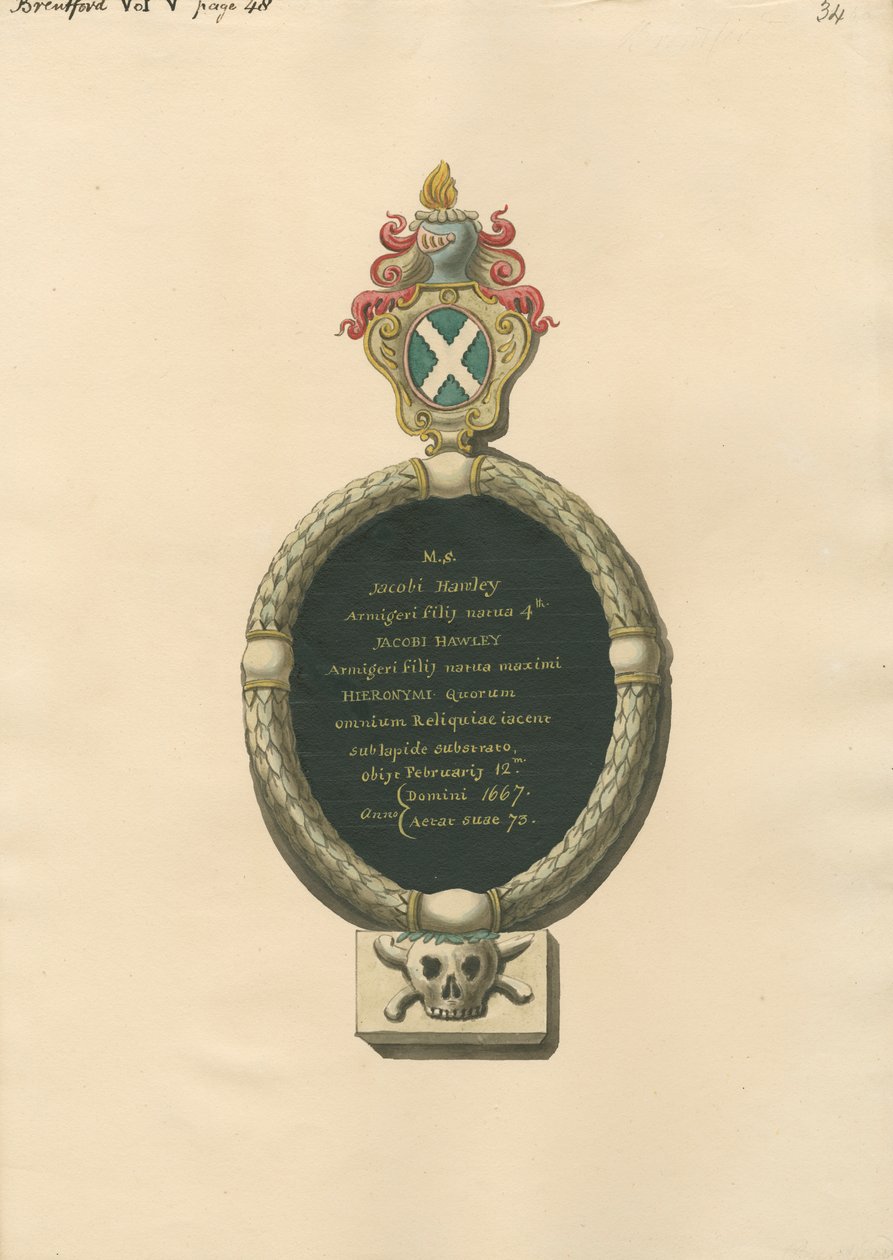 Brentford Vol V page 48
34
M.S.
Jacobi Hawley
Armigeri filij natua 4th.
JACOBI HAWLEY
Armigeri filij natua maximi
HIERONYMI. Quorum
omnium Reliquiae iacent
sub lapide substrato,
obijt Februarij 12.m
Anno { Domini 1667.
Aetat suae 73.